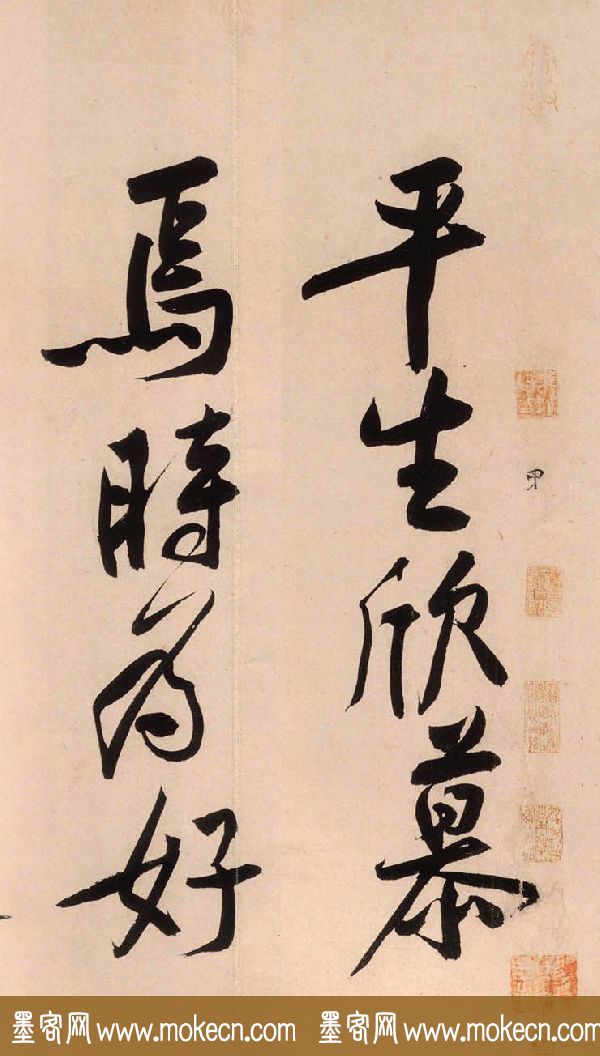 平生欣慕
焉時为好
墨客网 www.mokecn.com 墨客网 www.mokecn.com